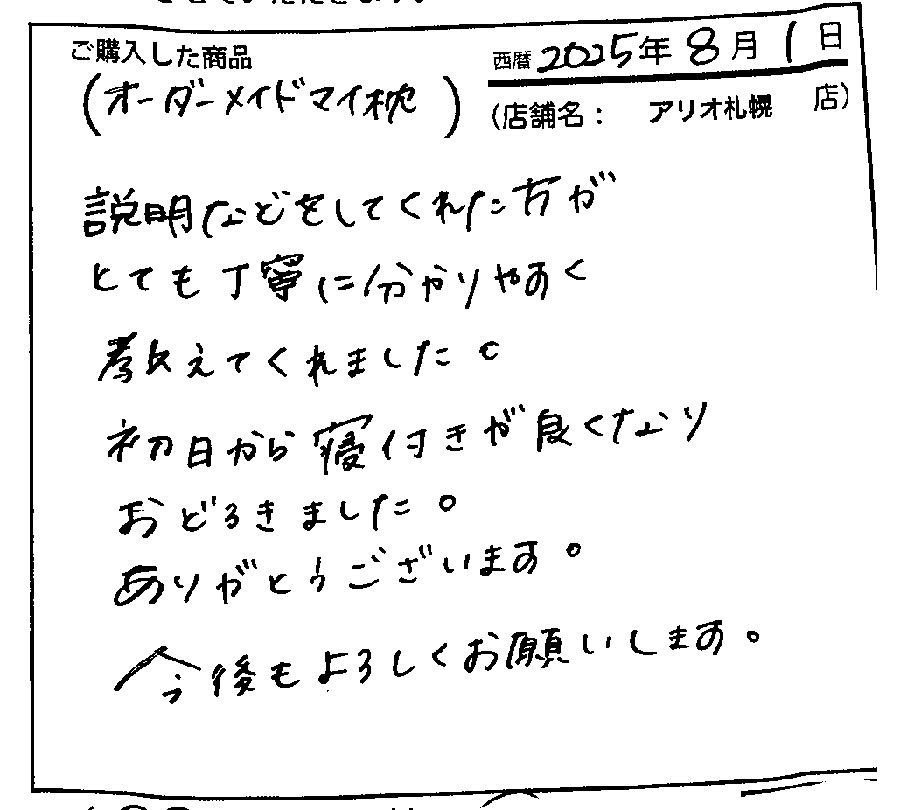 ご購入した商品
西暦 2025年 8月 1日
(オーダーメイドマイ枕)
(店舗名： アリオ札幌 店)
説明などをしてくれた方が
とても丁寧に分かりやすく
教えてくれました。
初日から寝付きが良くなり
おどろきました。
ありがとうございます。
今後もよろしくお願いします。